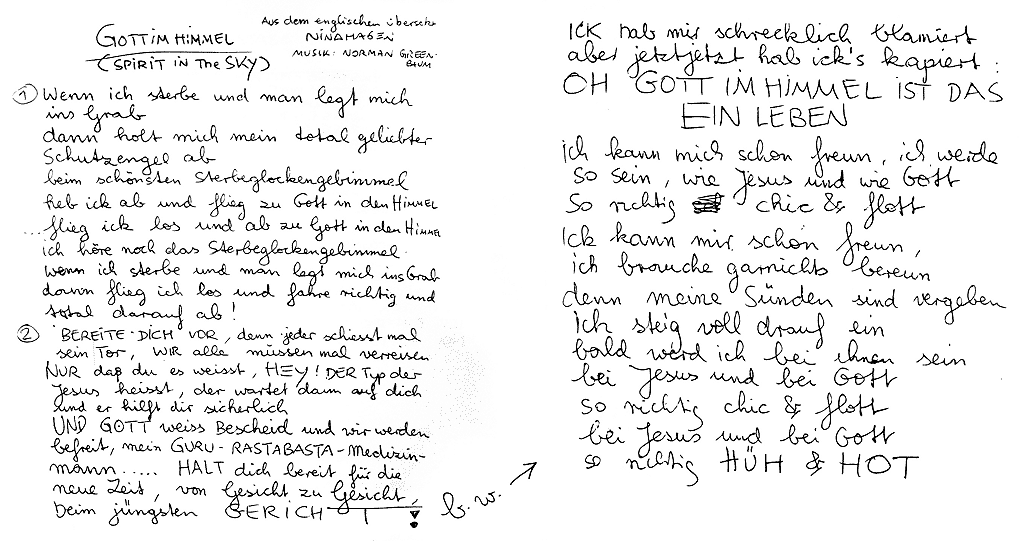 GOTT IM HIMMEL
(SPIRIT IN THE SKY)
Aus dem englischen übersetzt
NINA HAGEN
MUSIK: NORMAN GREEN-
BAUM
① Wenn ich sterbe und man legt mich
ins Grab
dann holt mich mein total geliebter
Schutzengel ab
beim schönsten Sterbeglockengebimmel
heb ick ab und flieg zu Gott in den HIMMEL
...flieg ick los und ab zu Gott in den HIMMEL
ich höre noch das Sterbeglockengebimmel.
wenn ich sterbe und man legt mich ins Grab
dann flieg ich los und fahre richtig und
total darauf ab!
② BEREITE DICH VOR, denn jeder schiesst mal
sein TOR, WIR alle müssen mal verreisen
NUR daß du es weisst, HEY! DER Typ der
Jesus heisst, der wartet dann auf dich
und er hilft dir sicherlich
UND GOTT weiss Bescheid und wir werden
befreit, mein GURU-RASTABASTA-Medizin-
mann..... HALT dich bereit für die
neue Zeit, von Gesicht zu Gesicht,
beim jüngsten GERICHT!
b.w.
ICK hab mir schrecklich blamiert
aber jetztjetzt hab ick's kapiert:
OH GOTT IM HIMMEL IST DAS
EIN LEBEN
Ich kann mich schon freun, ich werde
so sein, wie Jesus und wie Gott
so richtig chic & flott
Ick kann mir schon freun,
ich brauche garnichts bereun
denn meine Sünden sind vergeben
Ich steig voll drauf ein
bald werd ich bei ihnen sein
bei Jesus und bei Gott
so richtig chic & flott
bei Jesus und bei Gott
so richtig HÜH & HOT